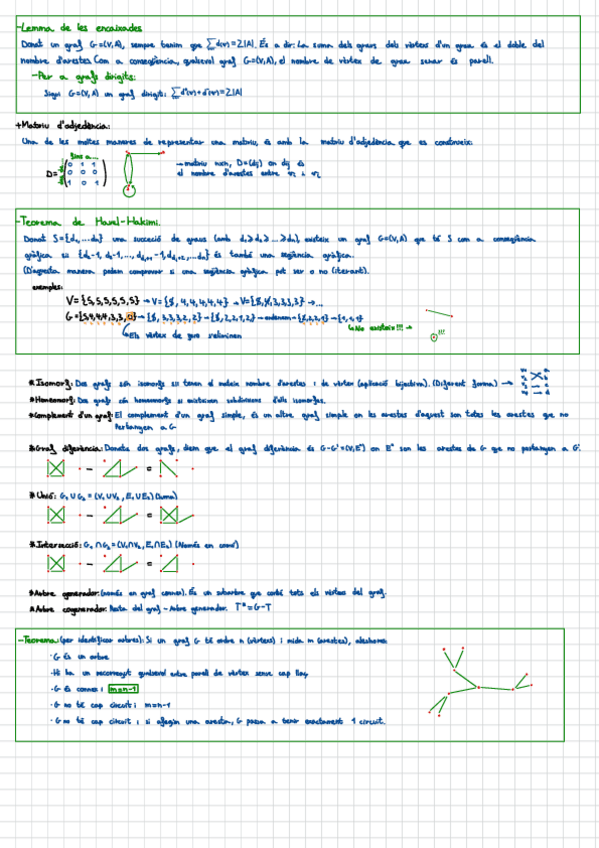 -Lemma de les encaixades
Donat un graf G=(V,A), sempre tenim que ∑d(v)=2|A|. És a dir: La suma dels graus dels vèrtexs d'un graf és el doble del
nombre d'arestes. Com a conseqüència, qualsevol graf G=(V,A), el nombre de vèrtex de grau senar és parell.
-Per a grafs dirigits:
Sigui G=(V,A) un graf dirigit: ∑d⁺(v)+d⁻(v)=2|A|
+Matriu d'adjacència:
Una de les moltes maneres de representar una matriu, és amb la matriu d'adjacència que es construeix:
Fins a...
D= 0 1 1
0 0 0
1 0 1
→matriu nxn, D=(dij) on dij és
el nombre d'arestes entre vi i vj
-Teorema de Havel-Hakimi.
Donat S={d₁,...dn} una succeció de graus (amb d₁≥d₂≥...≥dn), existeix un graf G=(V,A) que té S com a conseqüència
gràfica sii {d₂-1, d₃-1,..., -1, ... dn} és també una seqüència gràfica.
(D'aquesta manera podem comprovar si una seqüència gràfica pot ser o no (iterant).
exemples:
V={5,5,5,5,5,5} → V={5, 4,4,4,4,4} → V={5,4,3,3,3,3} → ...
G={5,4,4,3,3,0} → {5, 3,3,2,2} → {3, 2,2,1,2} → ordenem → {3,2,2,1} → {1,1,1}
No existeix!!! →
!!!
Els vèrtex de grau s'eliminen
*Isomorf: Dos grafs són isomorfs sii tenen el mateix nombre d'arestes i de vèrtex (aplicació bijectiva). (Diferent forma) →
*Homeomorf: Dos grafs són homeomorfs si existeixen subdivisions d'ells isomorfes.
*Complement d'un graf: El complement d'un graf simple, és un altre graf simple on les arestes d'aquest son totes les arestes que no
Pertanyen a G
*Graf diferència: Donats dos grafs, diem que el graf diferència és G-G'=(V,E") on E" son les arestes de G que no pertanyen a G'.
- =
*Unió: G₁∪G₂=(V₁∪V₂, E₁∪E₂) (Suma)
- =
*Intersecció: G₁∩G₂=(V₁∩V₂, E₁∩E₂) (Només en comú)
- =
*Arbre generador: (només en graf connex). És un subarbre que conté tots els vèrtexs del graf.
*Arbre cogenerador: Resta del graf - Arbre generador. T*=G-T
-Teorema: (per identificar arbres): Si un graf G té ordre n (vèrtexs) i mida m (arestes), aleshores:
·G és un arbre
·Hi ha un recorregut qualsevol entre parell de vèrtex sense cap llaç
·G és connex i m=n-1
·G no té cap circuit i m=n-1
·G no té cap circuit i si afegim una aresta, G passa a tenir exactament 1 circuit.